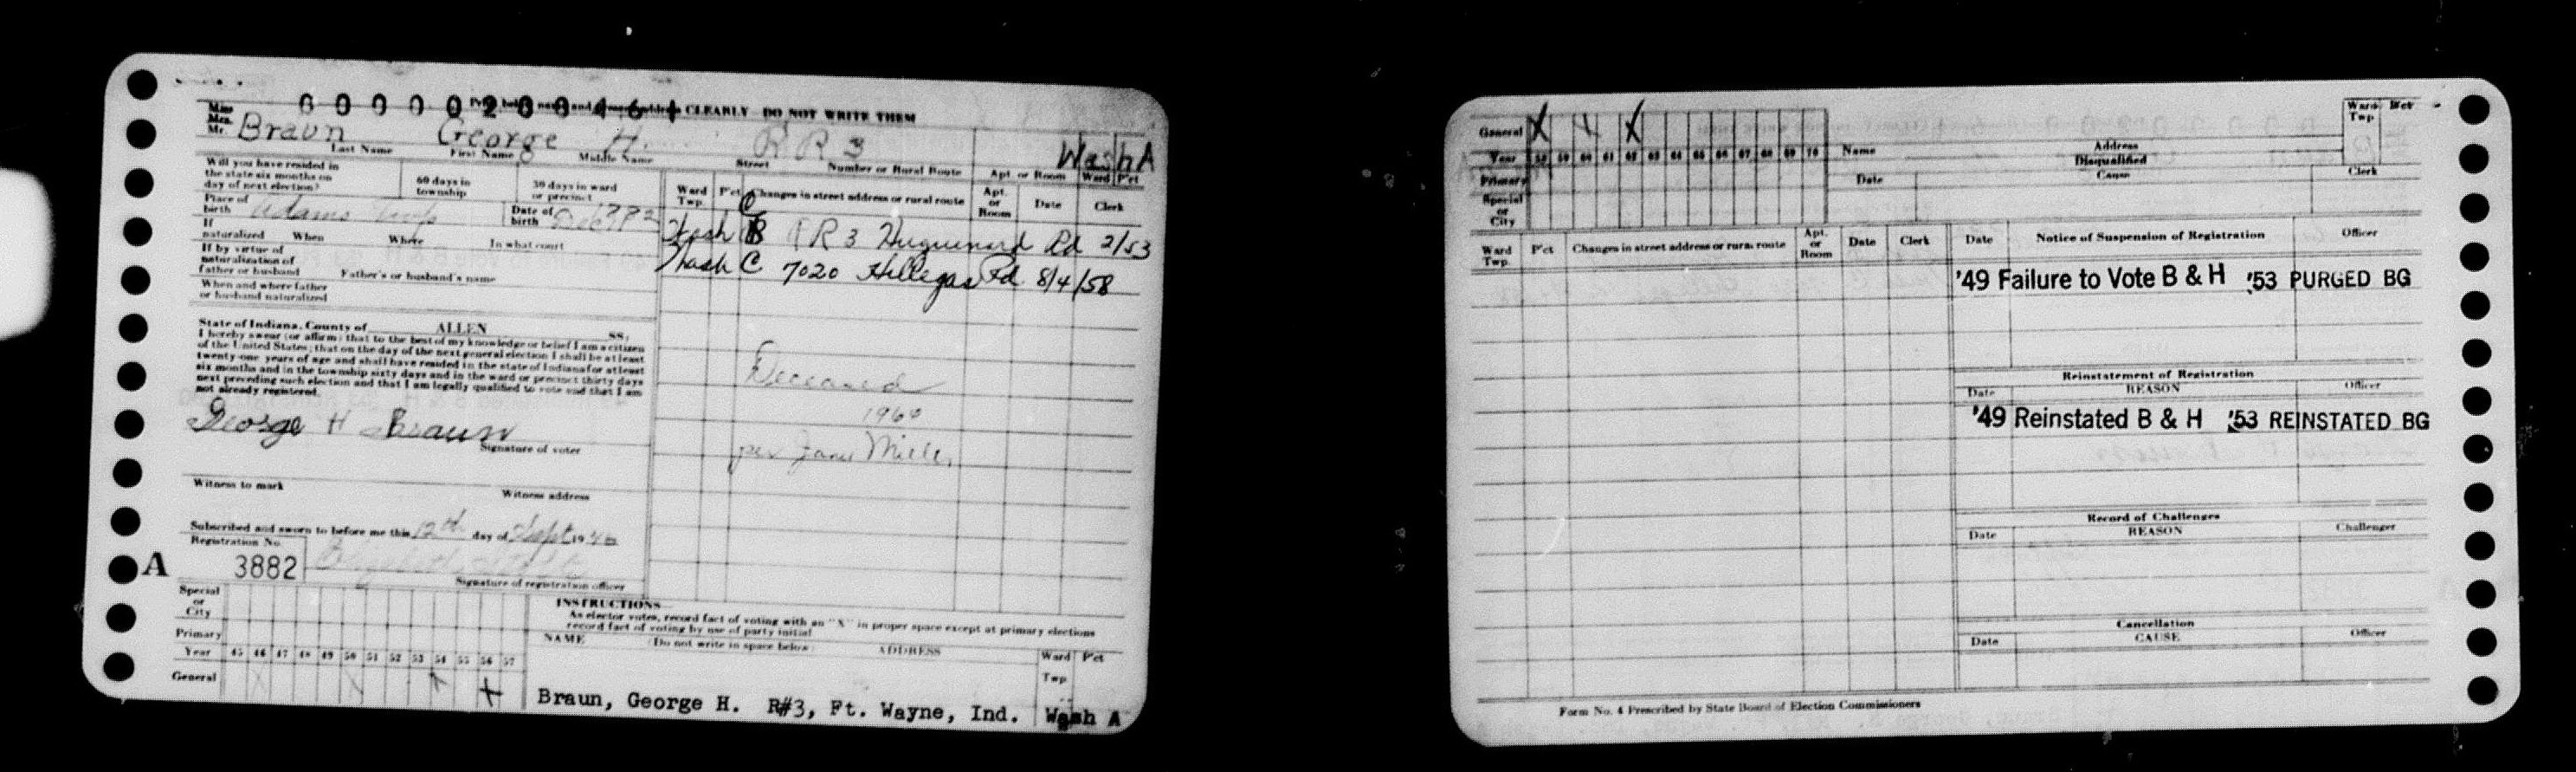 CLEARLY DO NOT WRITE THEM
Miss
Mrs.
Mr.
Braun George H. RR 3 Wash A
Last Name First Name Middle Name Street Number or Rural Route Apt. or Room Ward P'ct
Will you have resided in
the state six months on
day of next election?
60 days in
township
30 days in ward
or precinct
Place of
birth Adams Twp Date of
birth
If
naturalized When Where In what court
If by virtue of
naturalization of
father or husband Father's or husband's name
When and where father
or husband naturalized
State of Indiana, County of ALLEN SS:
I hereby swear (or affirm) that to the best of my knowledge or belief I am a citizen
of the United States; that on the day of the next general election I shall be at least
twenty-one years of age and shall have resided in the state of Indiana for at least
six months and in the township sixty days and in the ward or precinct thirty days
next preceding such election and that I am legally qualified to vote and that I am
not already registered.
George H Braun
Signature of voter
Witness to mark Witness address
Subscribed and sworn to before me this 12th day of Sept 1940
Registration No.
A 3882
Signature of registration officer
Special
or
City
Primary
Year 45 46 47 48 49 50 51 52 53 54 55 56 57
General X X X X
Ward
Twp. P'ct Changes in street address or rural route Apt.
or
Room Date Clerk
Wash B RR 3 Huguenard Rd 2/53
Wash C 7020 Hillegas Rd 8/4/58
Deceased
per Jane Miller
INSTRUCTIONS
As elector votes, record fact of voting with an "X" in proper space except at primary elections
record fact of voting by use of party initial
NAME (Do not write in space below) ADDRESS Ward
Twp P'ct
Braun, George H. R#3, Ft. Wayne, Ind. Wash A
General X X X
Year 58 59 60 61 62 63 64 65 66 67 68 69 70
Primary
Special
or
City
Ward
Twp Pct
Name Address
Disqualified
Date Cause Clerk
Ward
Twp. P'ct Changes in street address or rural route Apt.
or
Room Date Clerk
Date Notice of Suspension of Registration Officer
'49 Failure to Vote B & H '53 PURGED BG
Reinstatement of Registration
Date REASON Officer
'49 Reinstated B & H '53 REINSTATED BG
Record of Challenges
Date REASON Challenger
Cancellation
Date CAUSE Officer
Form No. 4 Prescribed by State Board of Election Commissioners